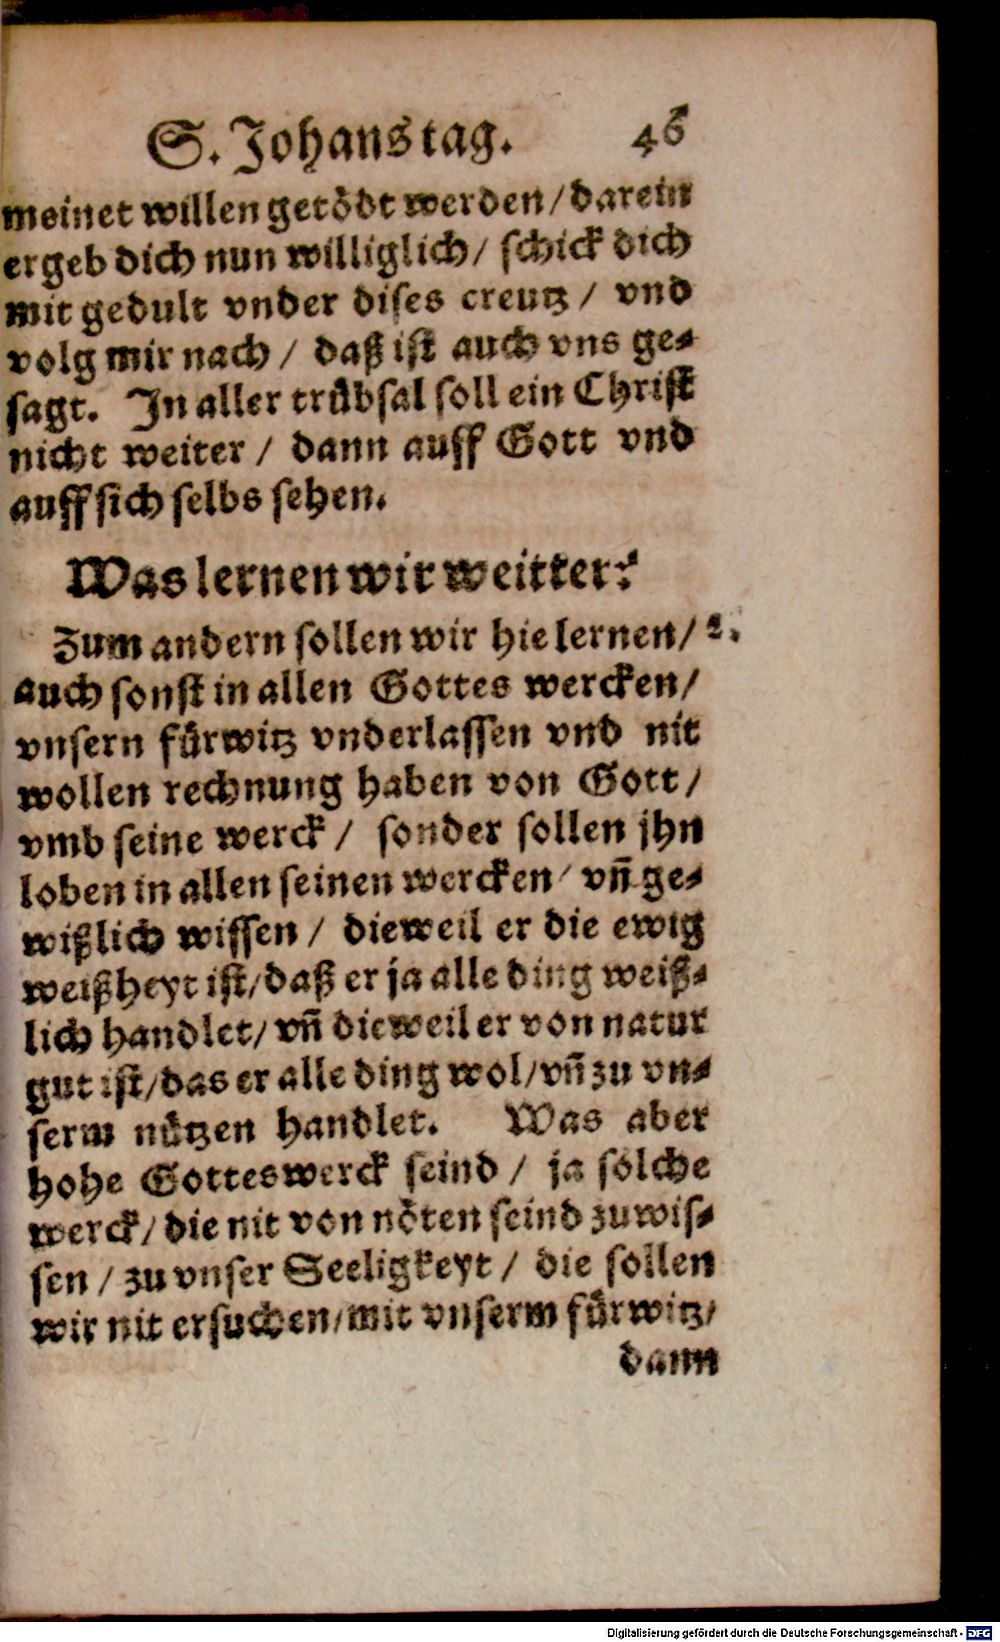 S. Johanstag. 46
meinet willen getödt werden / darein
ergeb dich nun williglich / schick dich
mit gedult vnder dises creutz / vnd
volg mir nach / daß ist auch vns ge⸗
sagt. In aller trübsal soll ein Christ
nicht weiter / dann auff Gott vnd
auff sich selbs sehen.
Was lernen wir weitter?
Zum andern sollen wir hie lernen / 2.
auch sonst in allen Gottes wercken /
vnsern fürwitz vnderlassen vnd nit
wollen rechnung haben von Gott /
vmb seine werck / sonder sollen jhn
loben in allen seinen wercken / vñ ge⸗
wißlich wissen / dieweil er die ewig
weißheyt ist / daß er ja alle ding weiß⸗
lich handlet / vñ dieweil er von natur
gut ist / das er alle ding wol / vñ zu vn⸗
serm nützen handlet. Was aber
hohe Gotteswerck seind / ja solche
werck / die nit von nöten seind zuwis⸗
sen / zu vnser Seeligkeyt / die sollen
wir nit ersuchen / mit vnserm fürwitz /
dann
Digitalisierung gefördert durch die Deutsche Forschungsgemeinschaft - DFG